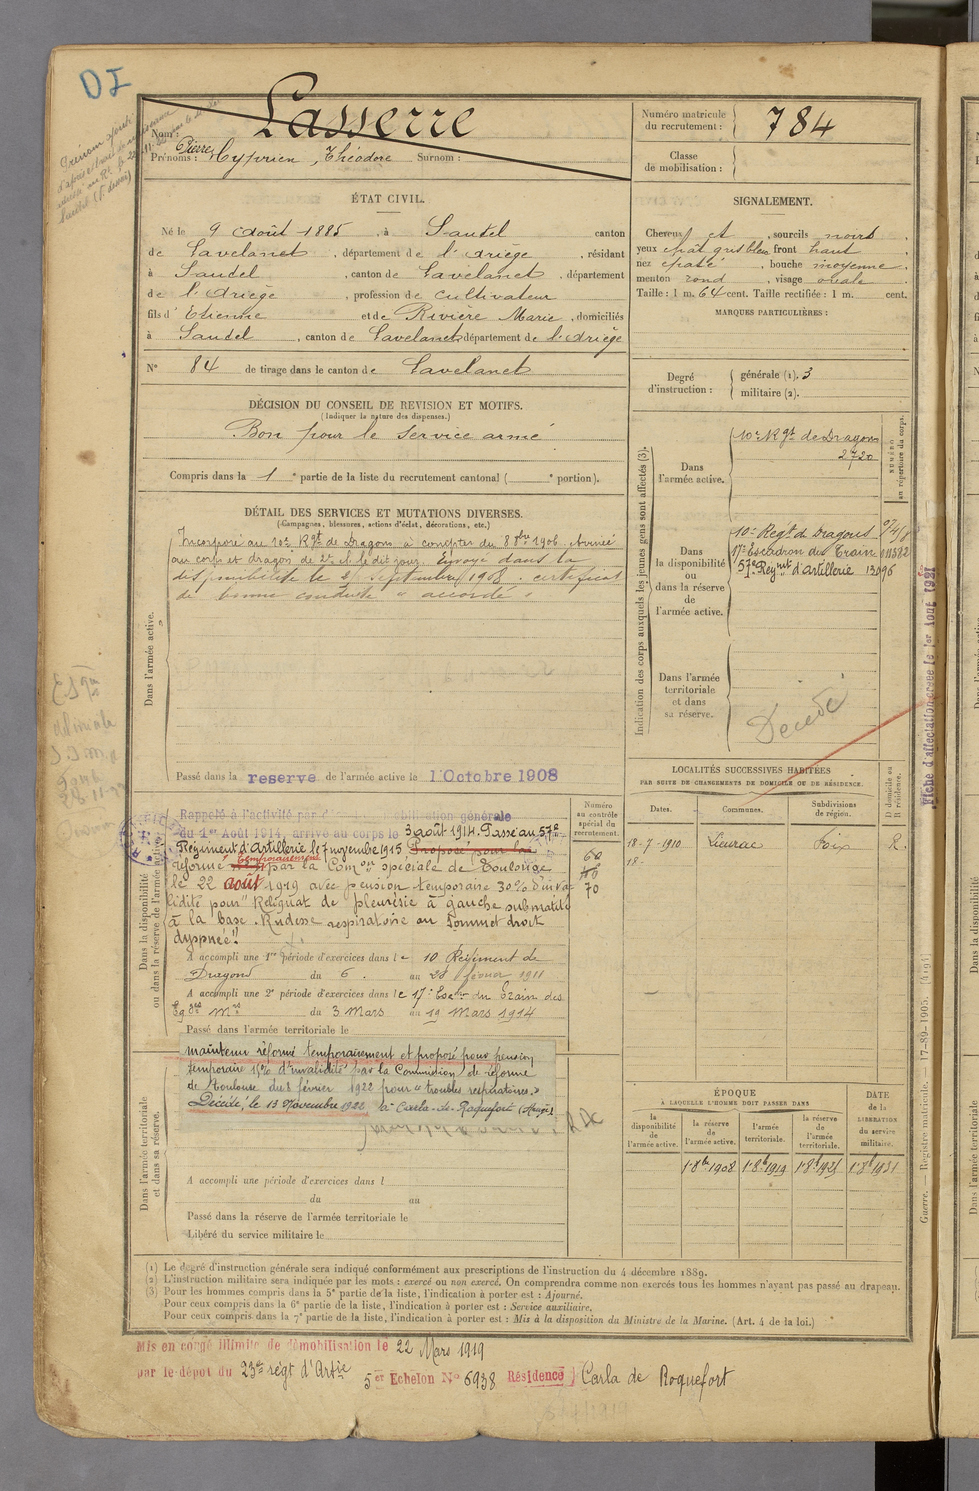 DI
Nom : Lasserre
Prénoms : Pierre Cyprien, Théodore Surnom :
Numéro matricule du recrutement : 784
Classe de mobilisation :
ÉTAT CIVIL.
Né le 9 Août 1885, à Sautel canton
de Lavelanet, département de l'Ariège, résidant
à Sautel, canton de Lavelanet, département
de l'Ariège, profession de cultivateur
fils d'Etienne et de Rivière Marie, domiciliés
à Sautel, canton de Lavelanet département de l'Ariège
N° 84 de tirage dans le canton de Lavelanet
SIGNALEMENT.
Cheveux et, sourcils noirs.
yeux chât gris bleu front haut
nez épaté, bouche moyenne.
menton rond, visage ovale.
Taille : 1 m. 64 cent. Taille rectifiée : 1 m. cent.
MARQUES PARTICULIÈRES :
Degré d'instruction : générale (1). 3
militaire (2).
DÉCISION DU CONSEIL DE REVISION ET MOTIFS.
(Indiquer la nature des dispenses.)
Bon pour le service armé
Compris dans la 1e partie de la liste du recrutement cantonal ( e portion).
DÉTAIL DES SERVICES ET MUTATIONS DIVERSES.
(Campagnes, blessures, actions d'éclat, décorations, etc.)
Dans l'armée active.
Incorporé au 10e Rgt de Dragons à compter du 8 8bre 1906. Arrivé
au corps et dragon de 2e cl. le dit jour. Envoyé dans la
disponibilité le Septembre 1908. certificat
de bonne conduite "accordé"
Passé dans la reserve de l'armée active le 1 Octobre 1908
Indication des corps auxquels les jeunes gens sont affectés (3).
NUMÉRO au répertoire du corps.
Dans l'armée active.
10e Rgt de Dragons
2720
Dans la disponibilité ou dans la réserve de l'armée active.
10e Regt de Dragons
17e Escadron du Train 011582
57e Regmt d'artillerie 13096
Dans l'armée territoriale et dans sa réserve.
Décédé
Fiche d'affectation créée le 1er Aout 1921
LOCALITÉS SUCCESSIVES HABITÉES
PAR SUITE DE CHANGEMENTS DE DOMICILE OU DE RÉSIDENCE.
Dates. Communes. Subdivisions de région. D domicile ou R résidence.
18-7-1910 Lieurac Foix R.
18-
Dans la disponibilité ou dans la réserve de l'armée active.
Numéro au contrôle spécial du recrutement.
70
Rappelé à l'activité par mobilisation générale
du 1er Août 1914, arrivé au corps le 3 août 1914. Passé au 57e
Régiment d'Artillerie le 7 novembre 1915 Proposé pour la
réformé temporairement par la Comon spéciale de Toulouse
le 22 août 1919 avec pension temporaire 30% d'inva-
lidité pour "Reliquat de pleurésie à gauche submatité
à la base. Rudesse respiratoire au sommet droit
dyspnée"
A accompli une 1re période d'exercices dans le 10 Régiment de
Dragons du 6. au 28 février 1911
A accompli une 2e période d'exercices dans le 17e Escon du Train des
Eq. du 3 Mars au 19 Mars 1914
Passé dans l'armée territoriale le
Dans l'armée territoriale et dans sa réserve.
maintenu réformé temporairement et proposé pour pension
temporaire 15% d'invalidité par la Commission de réforme
de Toulouse du 8 février 1922 pour "troubles respiratoires."
Décédé, le 13 Novembre 1922 à Carla-de-Roquefort (Ariège)
A accompli une période d'exercices dans l
du au
Passé dans la réserve de l'armée territoriale le
Libéré du service militaire le
ÉPOQUE
À LAQUELLE L'HOMME DOIT PASSER DANS
la disponibilité de l'armée active. la réserve de l'armée active. l'armée territoriale. la réserve de l'armée territoriale.
DATE de la LIBÉRATION du service militaire.
1-8bre 1908 1-8bre 1919 1-8bre 1925 1-8bre 1931
(1) Le degré d'instruction générale sera indiqué conformément aux prescriptions de l'instruction du 4 décembre 1889.
(2) L'instruction militaire sera indiquée par les mots : exercé ou non exercé. On comprendra comme non exercés tous les hommes n'ayant pas passé au drapeau.
(3) Pour les hommes compris dans la 5e partie de la liste, l'indication à porter est : Ajourné.
Pour ceux compris dans la 6e partie de la liste, l'indication à porter est : Service auxiliaire.
Pour ceux compris dans la 7e partie de la liste, l'indication à porter est : Mis à la disposition du Ministre de la Marine. (Art. 4 de la loi.)
Guerre. — Registre matricule. 17-89-1905.
Mis en congé illimité de démobilisation le 22 Mars 1919
par le dépôt du 23me régt d'Artie
5er Echelon N° 6938 Résidence) Carla de Roquefort